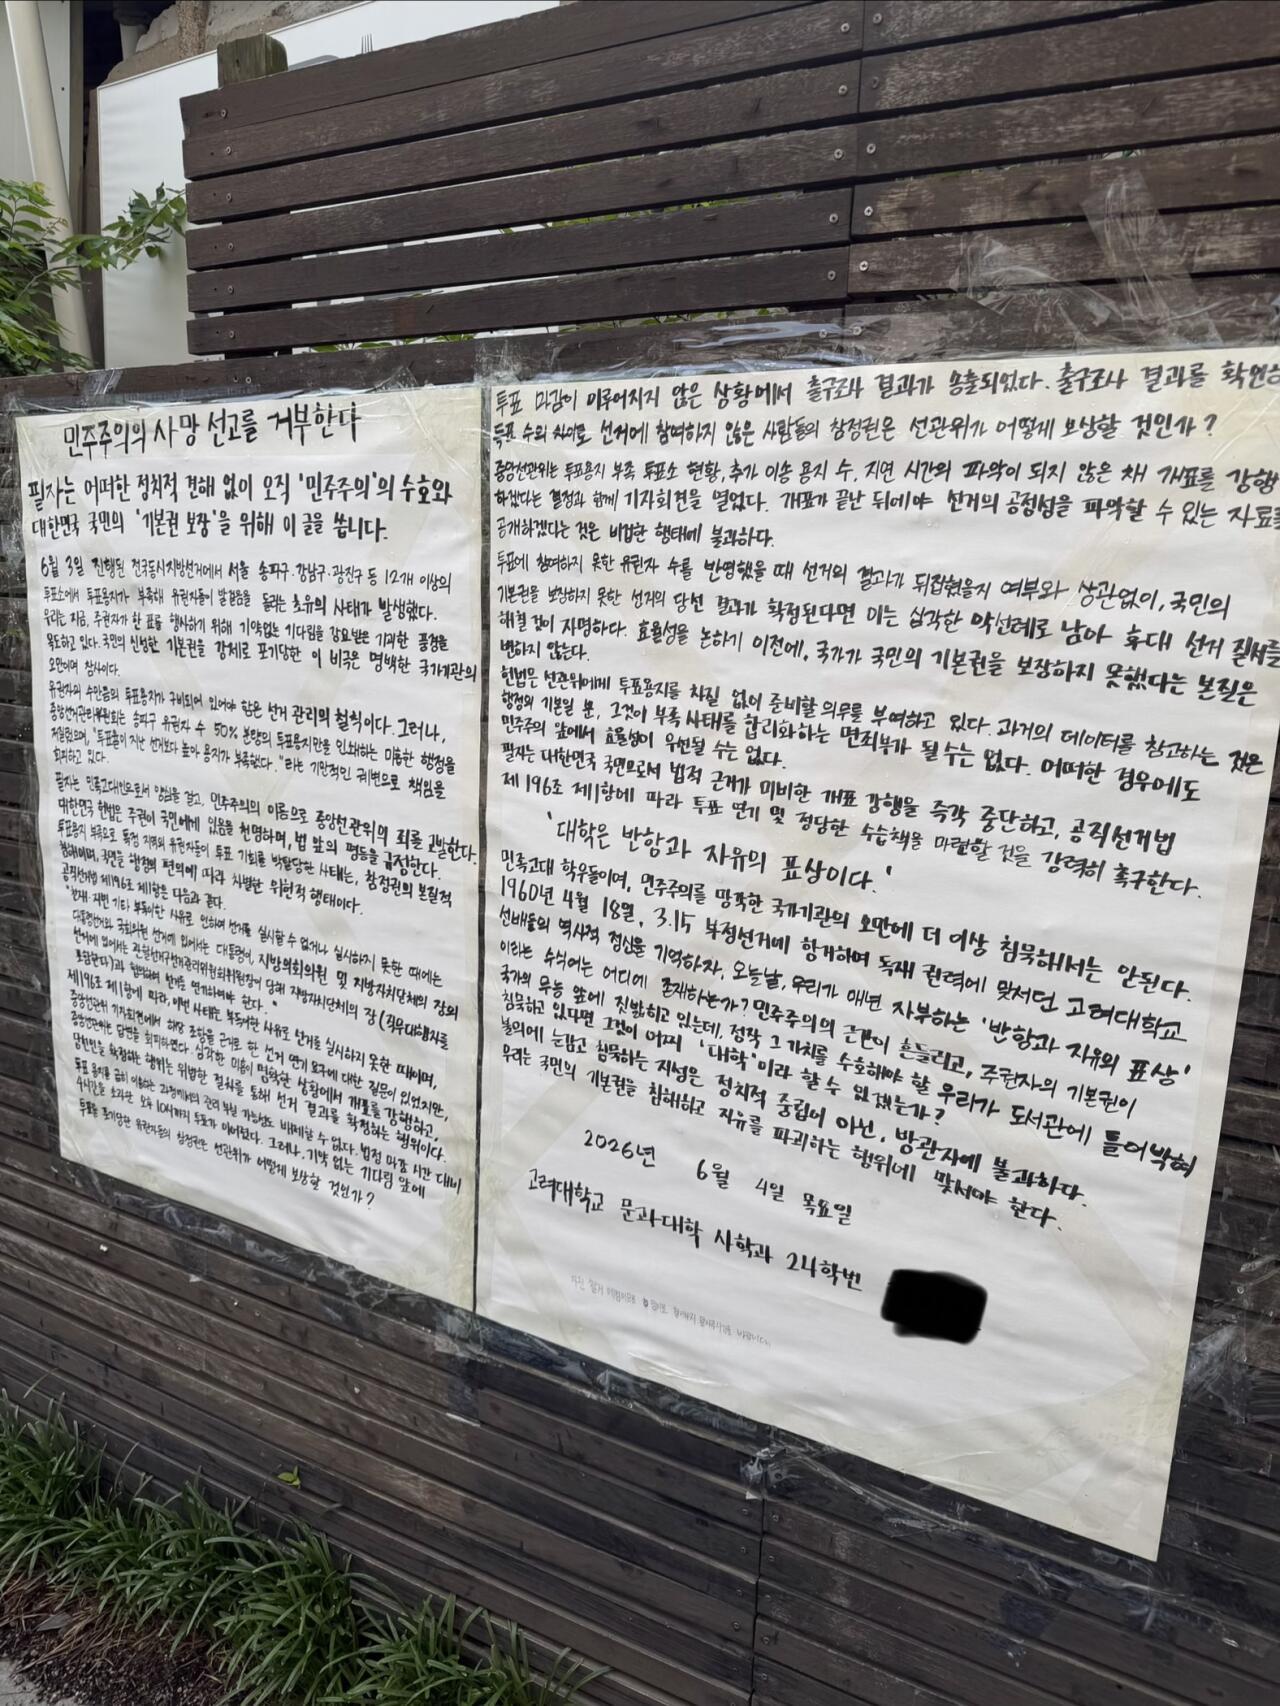 민주주의의 사망 선고를 거부한다
필자는 어떠한 정치적 견해 없이 오직 '민주주의'의 수호와
대한민국 국민의 '기본권 보장'을 위해 이 글을 씁니다.
6월 3일 진행된 전국동시지방선거에서 서울 송파구·강남구·광진구 등 12개 이상의
투표소에서 투표용지가 부족해 유권자들이 발걸음을 돌리는 초유의 사태가 발생했다.
우리는 지금, 주권자가 한 표를 행사하기 위해 기약없는 기다림을 강요받은 기괴한 풍경을
목도하고 있다. 국민의 신성한 기본권을 강제로 포기당한 이 비극은 명백한 국가기관의
오만이며 참사이다.
유권자의 수만큼의 투표용지가 구비되어 있어야 함은 선거 관리의 철칙이다. 그러나,
중앙선거관리위원회는 송파구 유권자 수 50% 분량의 투표용지만을 인쇄하는 미흡한 행정을
저질렀으며, "투표율이 지난 선거보다 높아 용지가 부족했다."라는 기만적인 궤변으로 책임을
회피하고 있다.
필자는 민족고대인으로서 양심을 걸고, 민주주의의 이름으로 중앙선관위의 죄를 고발한다.
대한민국 헌법은 주권이 국민에게 있음을 천명하며, 법 앞의 평등을 규정한다.
투표용지 부족으로 특정 지역의 유권자들이 투표 기회를 박탈당한 사태는, 참정권의 본질적
침해이며, 국민을 행정의 편의에 따라 차별한 위헌적 행태이다.
공직선거법 제196조 제1항은 다음과 같다.
"천재·지변 기타 부득이한 사유로 인하여 선거를 실시할 수 없거나 실시하지 못한 때에는
대통령선거와 국회의원 선거에 있어서는 대통령이, 지방의회의원 및 지방자치단체의 장의
선거에 있어서는 관할선거구선거관리위원회위원장이 당해 지방자치단체의 장(직무대행자를
포함한다)과 협의하여 선거를 연기하여야 한다."
제196조 제1항에 따라, 이번 사태는 부득이한 사유로 선거를 실시하지 못한 때이며,
중앙선관위 기자회견에서 해당 조항을 근거로 한 선거 연기 요구에 대한 질문이 있었지만,
중앙선관위는 답변을 회피하였다. 심각한 미흡이 명확한 상황에서 개표를 강행하고,
당선인을 확정하는 행위는 위법한 절차를 통해 선거 결과를 확정하는 행위이다.
투표 용지를 급히 이송하는 과정에서의 관리 부실 가능성도 배제할 수 없다. 법정 마감 시간 대비
4시간을 초과한 오후 10시까지 투표가 이어졌다. 그러나, 기약 없는 기다림 앞에
투표를 포기당한 유권자들의 참정권은 선관위가 어떻게 보상할 것인가?
투표 마감이 이루어지지 않은 상황에서 출구조사 결과가 송출되었다. 출구조사 결과를 확인하
득표 수의 차이로 선거에 참여하지 않은 사람들의 참정권은 선관위가 어떻게 보상할 것인가?
중앙선관위는 투표용지 부족 투표소 현황, 추가 이송 용지 수, 지연 시간의 파악이 되지 않은 채 개표를 강행
하겠다는 결정과 함께 기자회견을 열었다. 개표가 끝난 뒤에야 선거의 공정성을 파악할 수 있는 자료를
공개하겠다는 것은 비겁한 행태에 불과하다.
투표에 참여하지 못한 유권자 수를 반영했을 때 선거의 결과가 뒤집혔을지 여부와 상관없이, 국민의
기본권을 보장하지 못한 선거의 당선 결과가 확정된다면 이는 심각한 악선례로 남아 후대 선거 질서를
해칠 것이 자명하다. 효율성을 논하기 이전에, 국가가 국민의 기본권을 보장하지 못했다는 본질은
변하지 않는다.
헌법은 선관위에게 투표용지를 차질 없이 준비할 의무를 부여하고 있다. 과거의 데이터를 참고하는 것은
행정의 기본일 뿐, 그것이 부족 사태를 합리화하는 면죄부가 될 수는 없다. 어떠한 경우에도
민주주의 앞에서 효율성이 우선될 수는 없다.
필자는 대한민국 국민으로서 법적 근거가 미비한 개표 강행을 즉각 중단하고, 공직선거법
제196조 제1항에 따라 투표 연기 및 정당한 수습책을 마련할 것을 강력히 촉구한다.
'대학은 반항과 자유의 표상이다.'
민족고대 학우들이여, 민주주의를 망각한 국가기관의 오만에 더 이상 침묵해서는 안된다.
1960년 4월 18일, 3.15 부정선거에 항거하며 독재 권력에 맞서던 고려대학교
선배들의 역사적 정신을 기억하자. 오늘날, 우리가 매년 자부하는 '반항과 자유의 표상'
이라는 수식어는 어디에 존재하는가? 민주주의의 근간이 흔들리고, 주권자의 기본권이
국가의 무능 앞에 짓밟히고 있는데, 정작 그 가치를 수호해야 할 우리가 도서관에 틀어박혀
침묵하고 있다면 그것이 어찌 '대학'이라 할 수 있겠는가?
불의에 눈감고 침묵하는 지성은 정치적 중립이 아닌, 방관자에 불과하다.
우리는 국민의 기본권을 침해하고 자유를 파괴하는 행위에 맞서야 한다.
2026년 6월 4일 목요일
고려대학교 문과대학 사학과 24학번